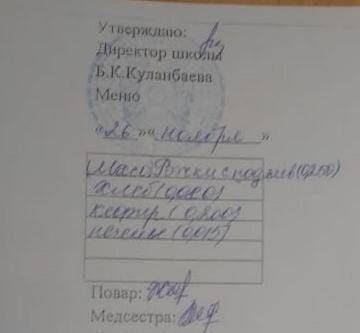 Утверждаю:
Директор школы
Б.К.Куланбаева
Меню
«26»«ноября»
Рожки с подлив (0,250)
Хлеб (0,080)
кефир (0,200)
печенье (0,015)
Повар:
Медсестра: